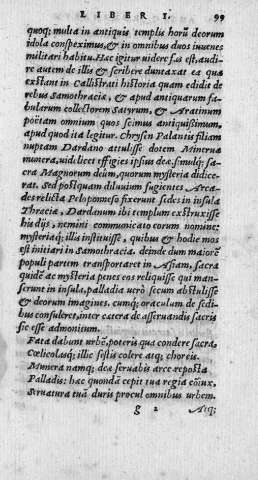 LIBER I. 99
quoq; multa in antiquis templis horũ deorum
idola conspeximus, & in omnibus duos iuuenes
militari habitu. Hæc igitur uidere fas est, audi-
re autem de illis & scribere duntaxat ea quæ
extant in Callistrati historia quam edidit de
rebus Samothracix, & apud antiquarum fa-
bularum collectorem Satyrum, & Aratinum
poëtam omnium quos scimus antiquißimum,
apud quod ita legitur. Chrysen Palantis filiam
nuptum Dardano attulisse dotem Mineruæ
munera, uidelicet effigies ipsius deæ, simulq; sa-
cra Magnorum deûm, quorum mysteria didice-
rat. Sed postquam diluuium fugientes Arca-
des relicta Peloponneso fixerunt sedes in insula
Thracia, Dardanum ibi templum extruxisse
his dijs, nemini communicato eorum nomine:
mysteriaq; illis instituisse, quibus & hodie mos
est initiari in Samothracia. deinde dum maiorẽ
populi partem transportaret in Asiam, Sacra
quidẽ ac mysteria penes eos reliquisse qui man-
serunt in insula, palladia uerò secum abstulisse
& deorum imagines. cumq; oraculum de sedi-
bus consuleret, inter cætera de asseruandis sacris
sic esse admonitum.
Fata dabunt urbẽ, poteris qua condere sacra,
Cœlicolasq; illic festis colere atq; choreis.
Munera namq; deæ seruabis arce reposta
Palladis: hæc quondã cepit tua regia cõiux.
Seruatura tuã duris procul omnibus urbem.
g 2 Atq;